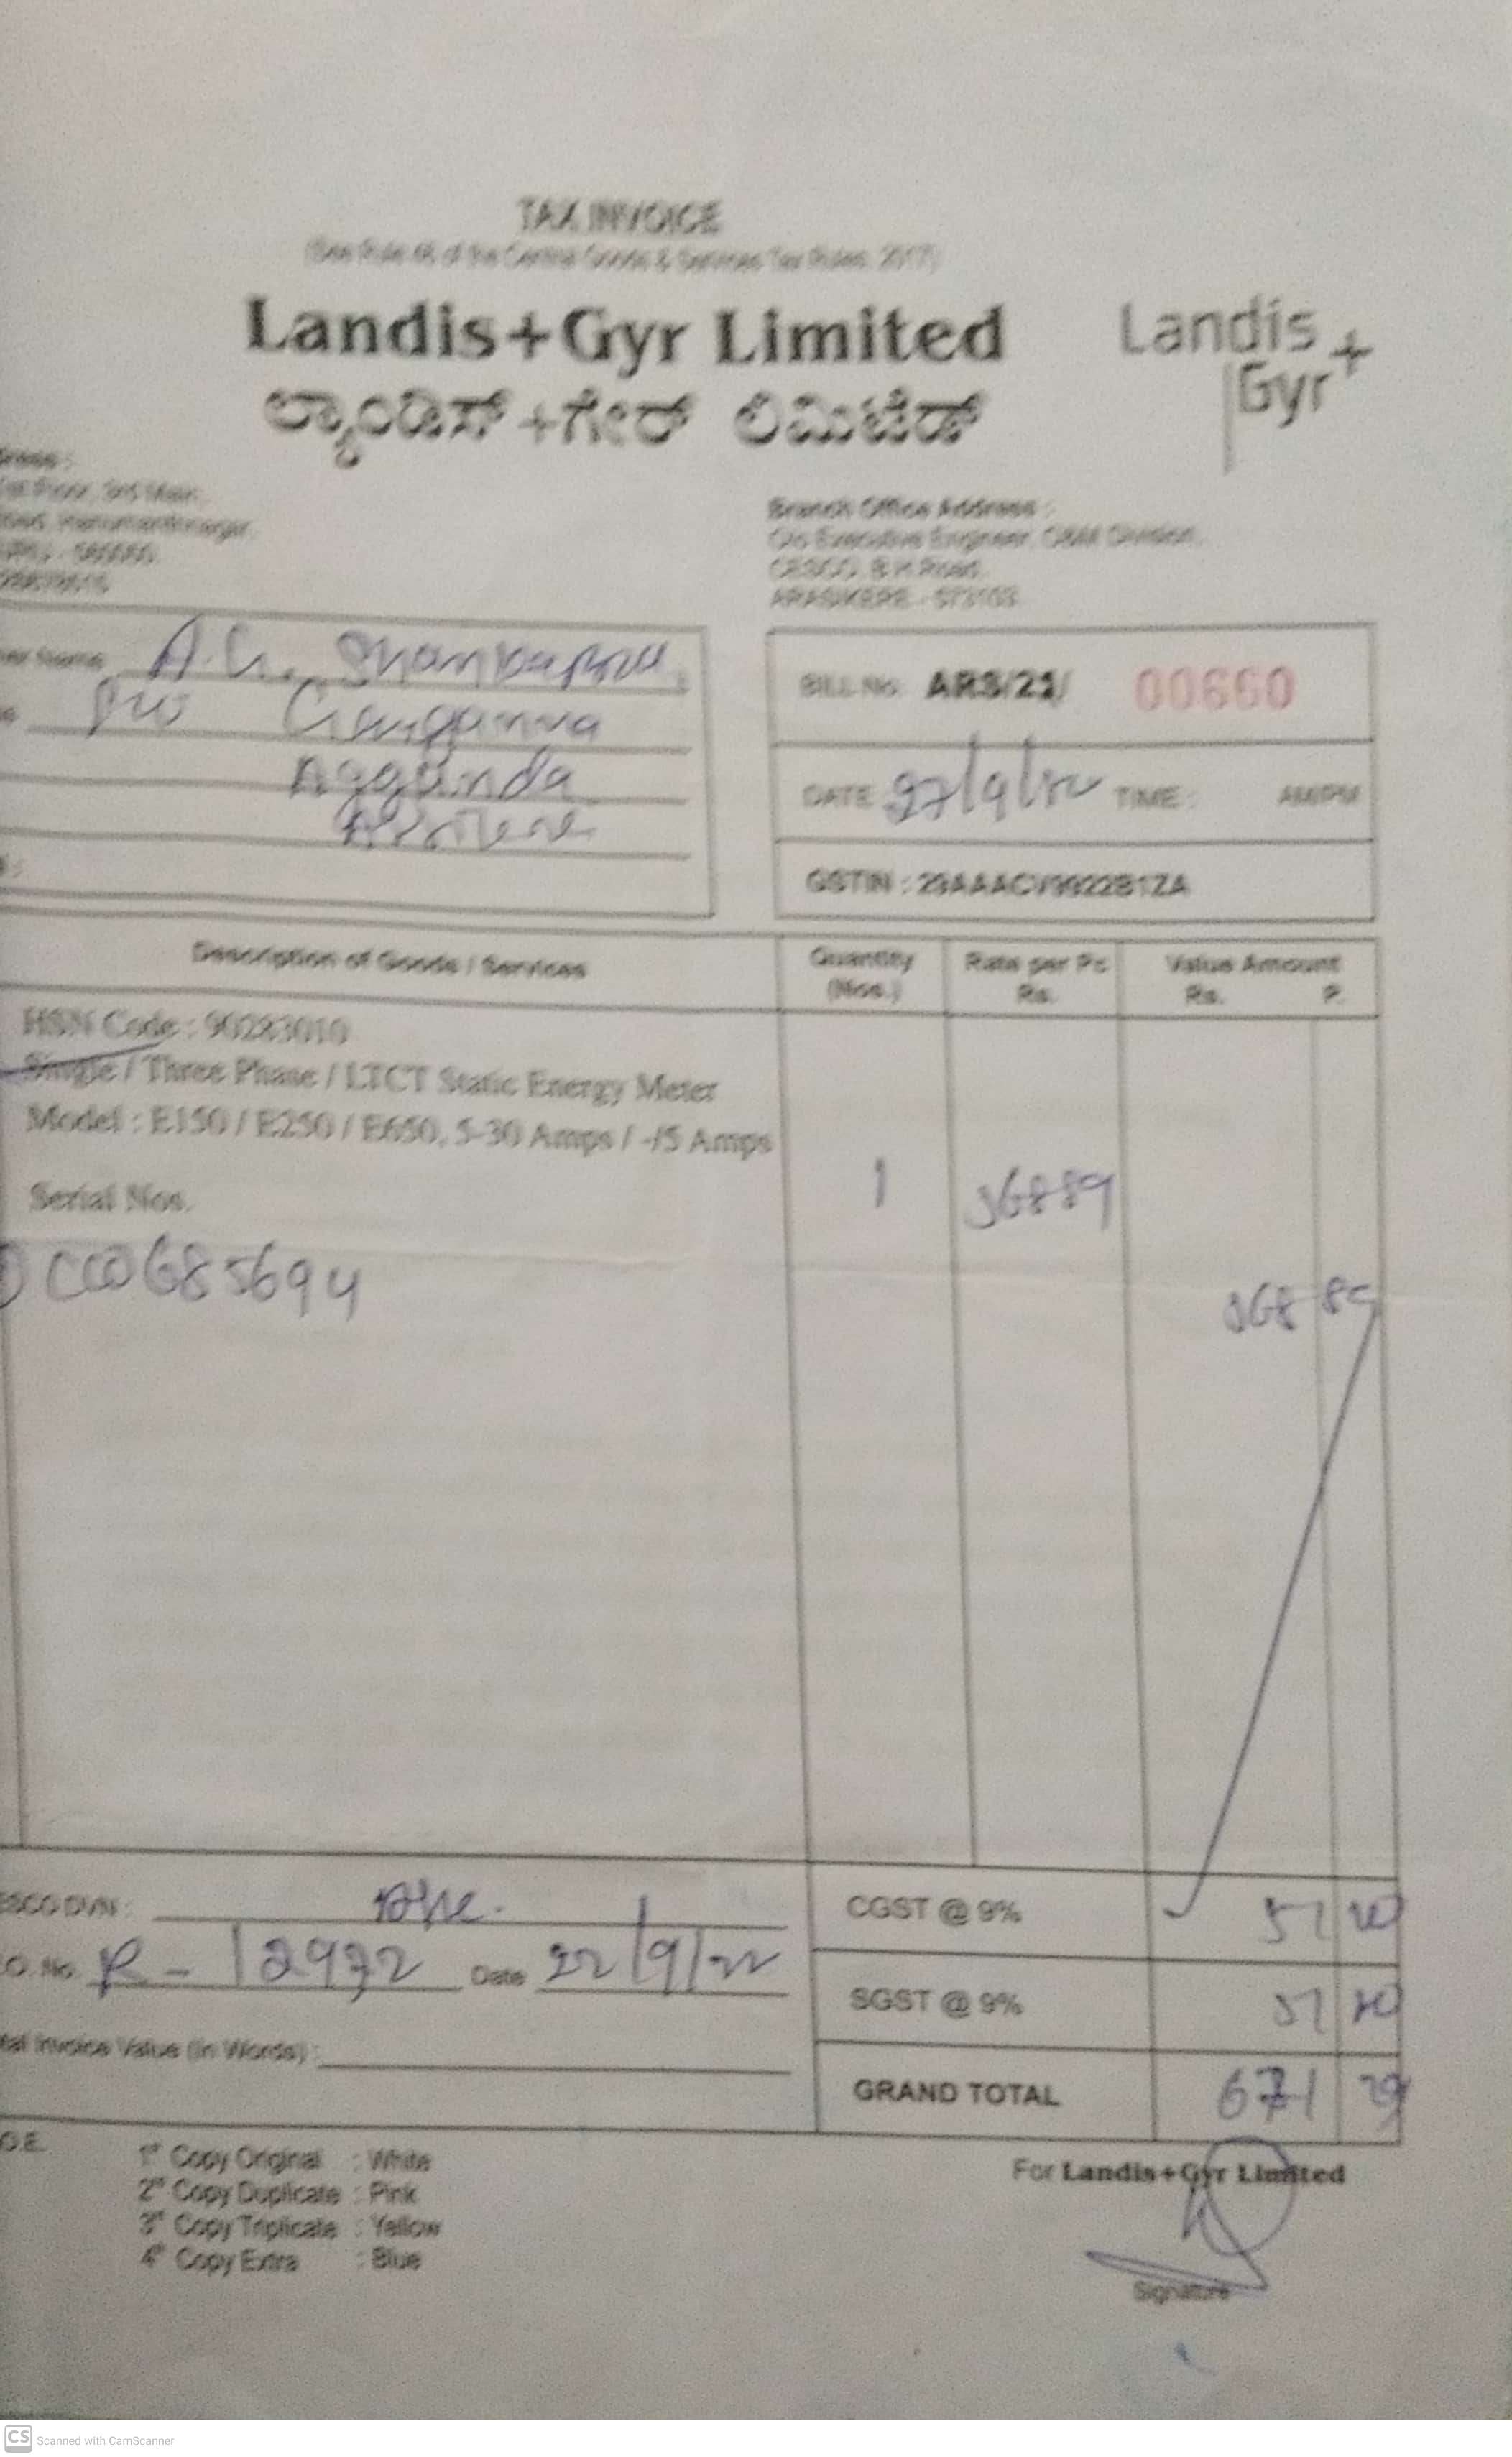 TAX INVOICE
(See Rule 46 of the Central Goods & Services Tax Rules, 2017)
Landis+Gyr Limited
Landis
Gyr+
ಲ್ಯಾಂಡಿಸ್ +ಗೇರ್ ಲಿಮಿಟೆಡ್
Floor, 3rd Main
Hanumanthnagar
Branch Office Address :
C/o Executive Engineer, O&M Division,
CESCO, B.H.Road,
ARASIKERE - 573103
Name A.G.
BILL No. ARS/21/ 00660
S/o Ganganna
Aggunda
DATE 27/9/22 TIME : AM/PM
GSTIN : 29AAACV9922B1ZA
Description of Goods / Services
Quantity (Nos.)
Rate per Pc Rs.
Value Amount Rs. P.
HSN Code : 90283010
Single / Three Phase / LTCT Static Energy Meter
Model : E150 / E250 / E650, 5-30 Amps / -/5 Amps
Serial Nos.
1 56889
CC0685694
568 89
DVN :
CGST @ 9% 51 20
O. No. R - 12972 Date 22/9/22
SGST @ 9% 51 20
Invoice Value (In Words) :
GRAND TOTAL 671 29
O.E.
1st Copy Original : White
2nd Copy Duplicate : Pink
3rd Copy Triplicate : Yellow
4th Copy Extra : Blue
For Landis+Gyr Limited
Signature
CS Scanned with CamScanner